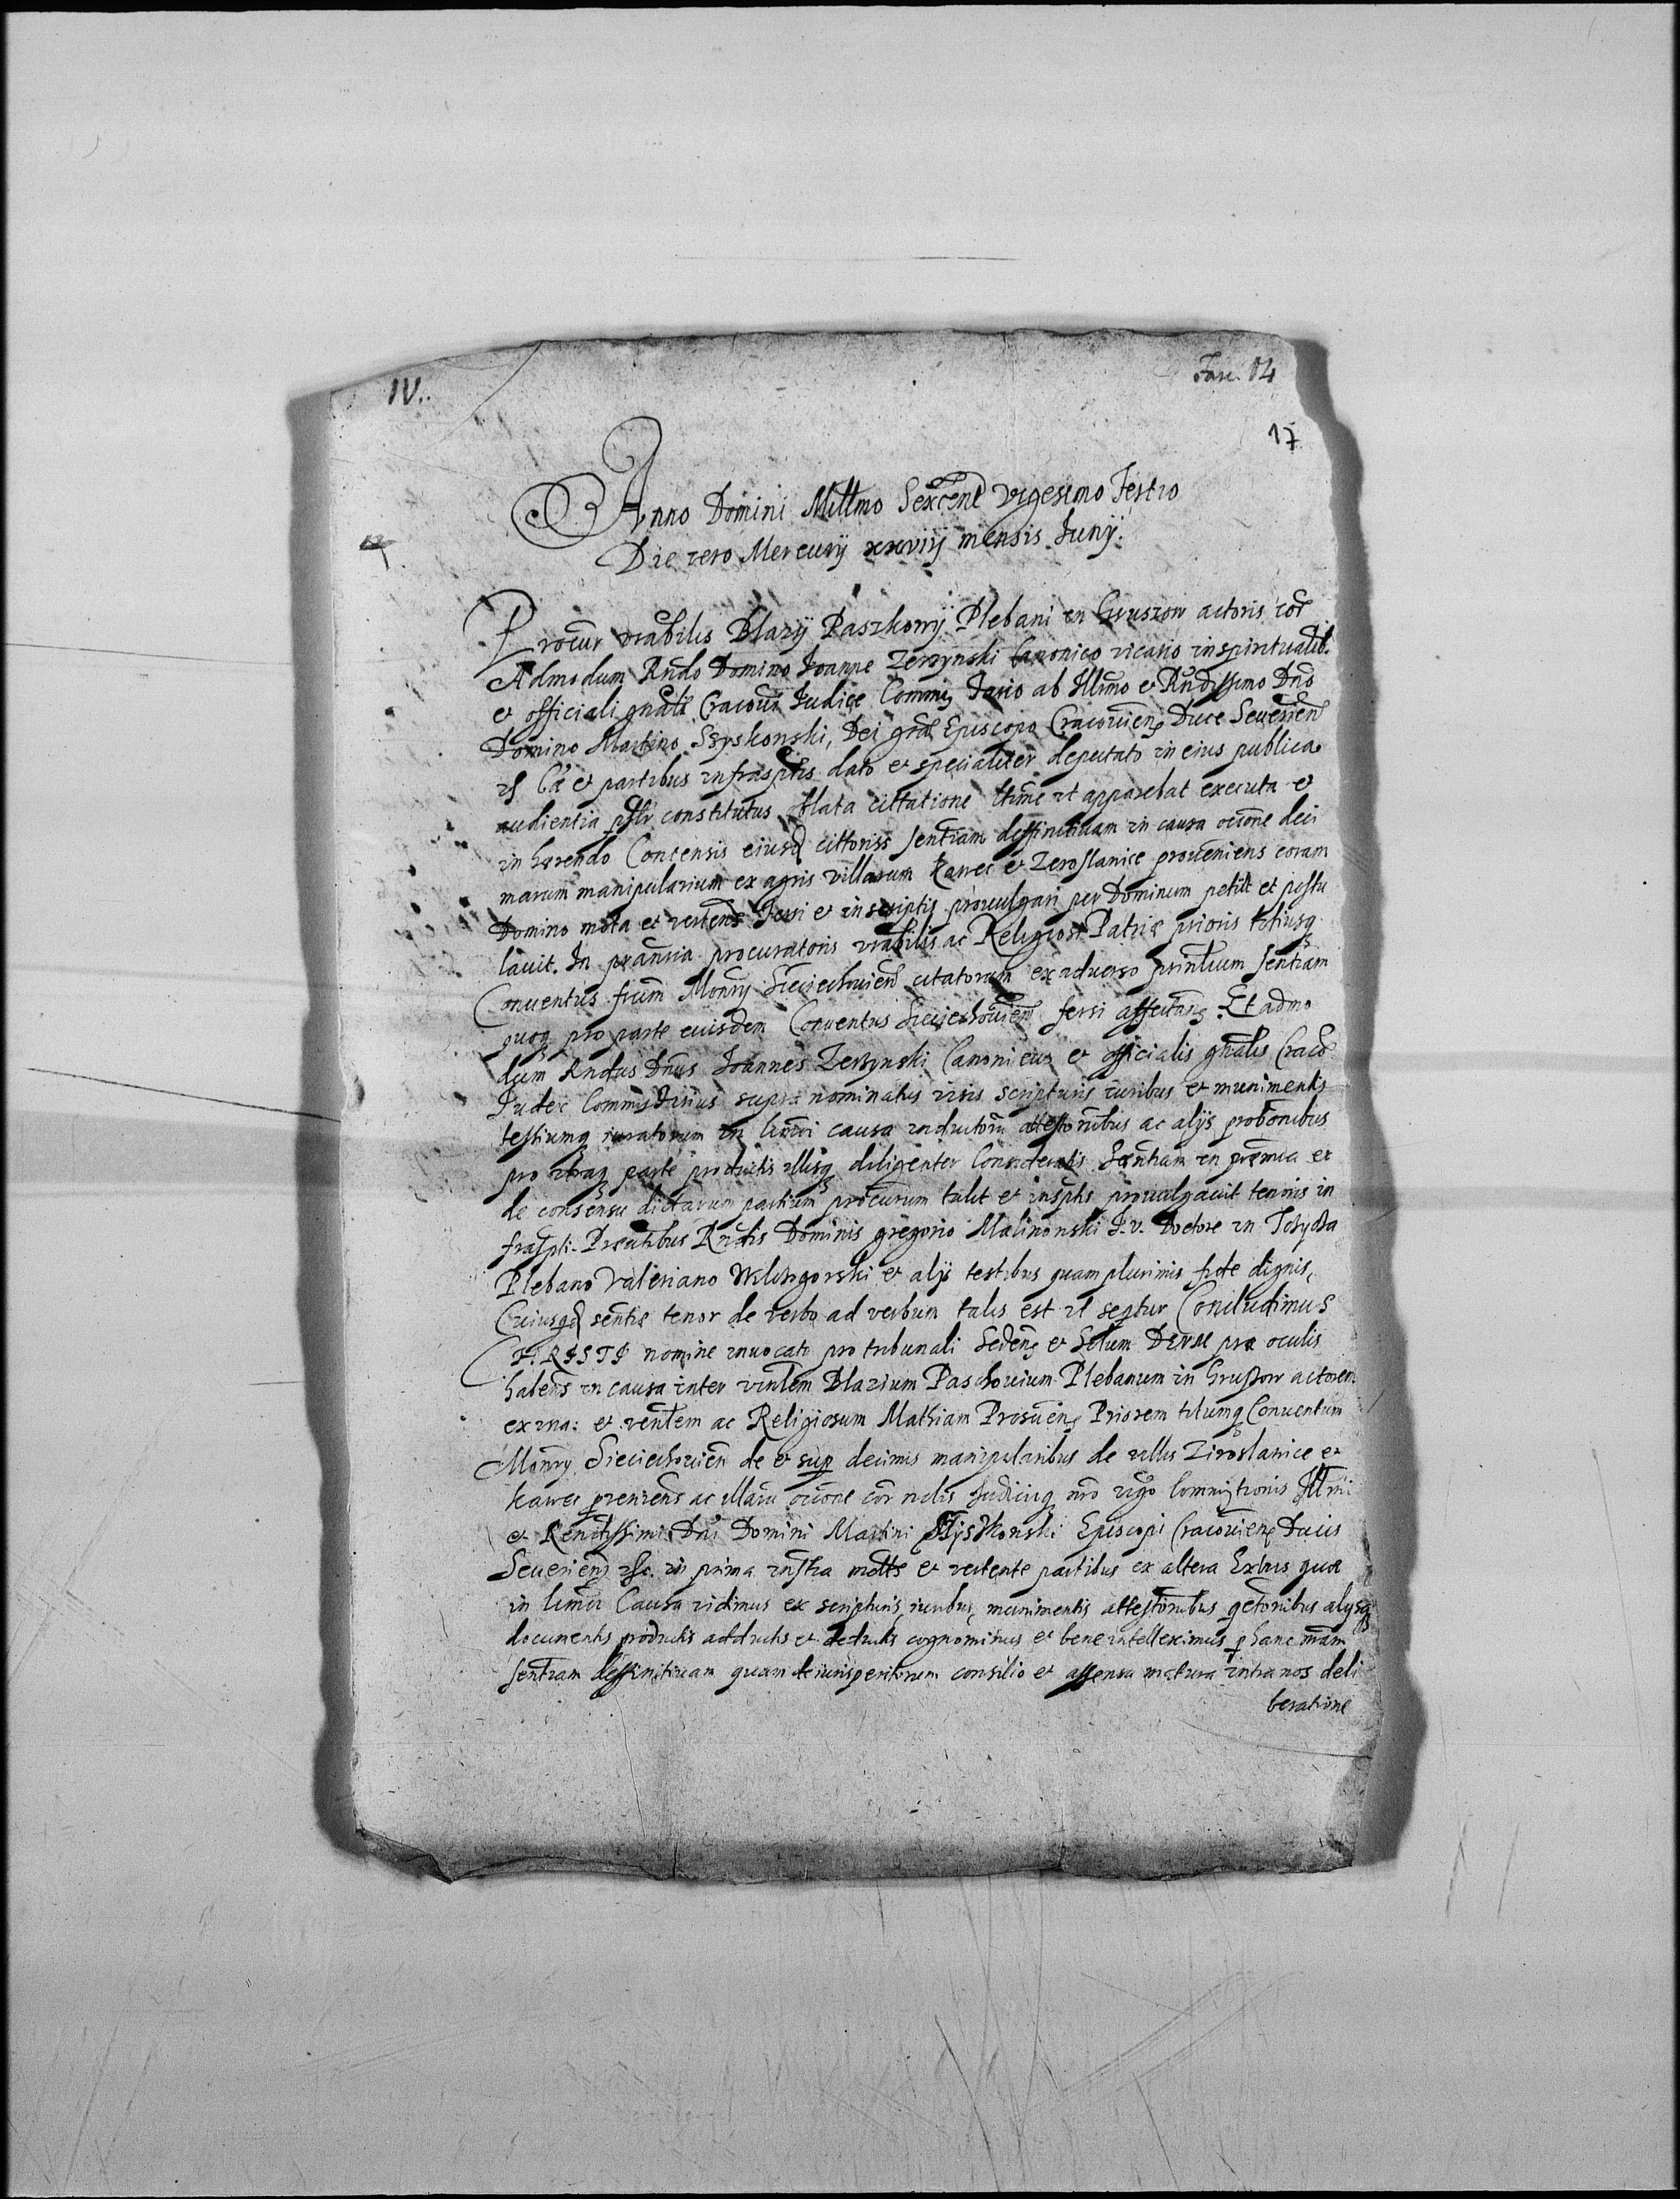 IV.
Fasc. 14
17
Anno Domini Millmo Sexcent vigesimo Tertio
Die vero Mercurij xxviij mensis Junij.
Procur vrabilis Blazij Paszkowij Plebani in Gruszow actoris cor
Admodum Rndo Domino Joanne Zerzynski Canonico vicario in spiritualib.
et officiali gnali Cracovi Judice Commis Jario ab Illmo et Rndissimo Dno
Domino Martino Szyskowski, Dei gra Episcopo Cracovien Duce Severien
et partibus infrasptis dato et specialiter deputato in eius publica
audientia constitutus oblata cittatione ltime vt apparebat executa et
in herendo Contensis eiusd cittoriss sentiam deffinitivam in causa ocione deci
marum manipularium ex agris villarum Kawec et Zeroslanice proveniens coram
Domino mota et verten Ferri et in scriptis provulgari per Dominum petiit et postu
lavit. In pransia procuratoris vrabilis ac Religiosi Patris prioris totiusq
Conventus frum Monry Sieciechovien citatorum ex adverso printium sentiam
quoq pro parte euisdem Conventus Sieciechovien ferri affectans. Et admo
dum Rndus Dnus Joannes Zerzynski Canonicus et officialis gnalis Craco
Judex Commisarius supra nominatus visis scripturis iuribus et munimentis
testiumq iuratorum in humoi causa inductorum attestonibus ac alijs probonibus
pro vtraq parte productis illisq diligenter Consideratis Sentiam in premia et
de consensu dictarum partium procurum tulit et insptis provulgavit tenoris in
frasspti. Pntibus Rndis Dominis gregorio Malinowski J. V. Doctore in
Plebano Valeriano et alijs testibus quam plurimis fide dignis,
Cuiusqd sentie tenor de verbo ad verbum talis est vt seqtur Concludimus
CHRISTI nomine invocato pro tribunali sedens et Solum Deum prae oculis
habens in causa inter vntlem Blazium Paschovium Plebanum in Gruszow actorem
ex vna: et ventlem ac Religiosum Mathiam Priorem totumq Conventum
Monry Sieciechovien de et sup decimis manipularibus de villis Ziroslanice et
Kawec proveniens ac illaru ocione cor nobis Judicibq mo vigo Commissionis Illmi
et Rendissimi Dni Domini Martini Szyszkowski Episcopi Cracovien Ducis
Severien in prima instra motte et vertente partibus ex altera Ex his quae
in humoi Causa vidimus ex scripturis, iuribus, munimentis attestonibus qetonibus alijsq
documentis productis adductis et deductis cognovimus et bene intelleximus p hanc nram
sentiam deffinitivam quam de iurisperitorum consilio et assensu matura intra nos deli
beratione